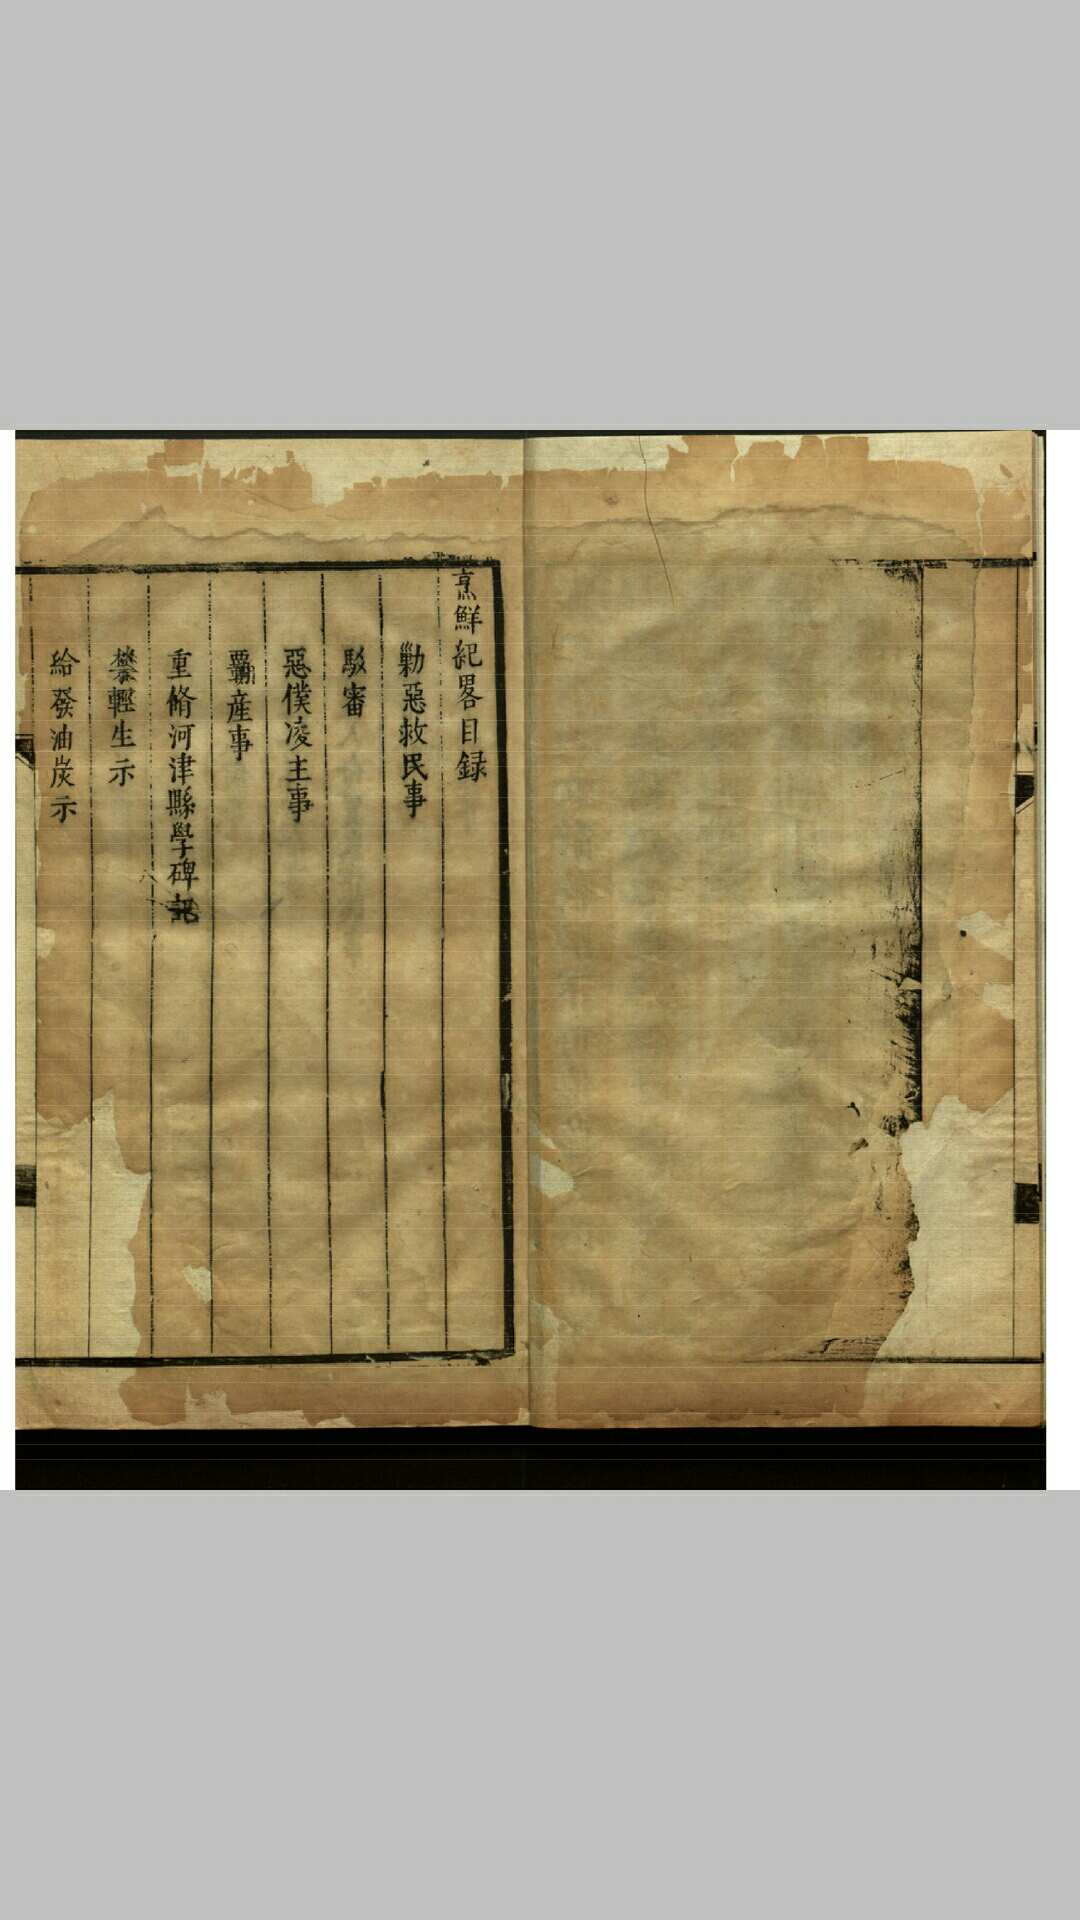 烹鮮紀畧目録
勦惡救民事
駁審
惡僕凌主事
霸産事
重脩河津縣學碑記
禁輕生示
給發油炭示